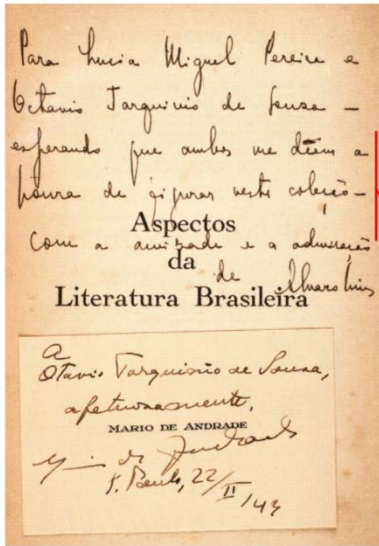 Para Lucia Miguel Pereira e
Octavio Tarquinio de Souza —
esperando que ambos me dêem a
honra de figurar nesta coleção —
Aspectos
com a amizade e a admiração
da
de Alvaro Lins
Literatura Brasileira
A
Otavio Tarquinio de Sousa,
afetuosamente,
MARIO DE ANDRADE
Mario de Andrade
S. Paulo, 22/II/44